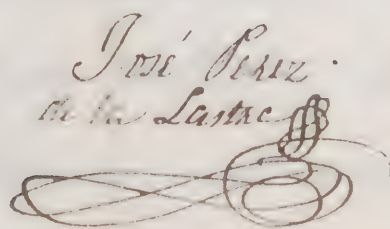 José Perez
de la Lastra